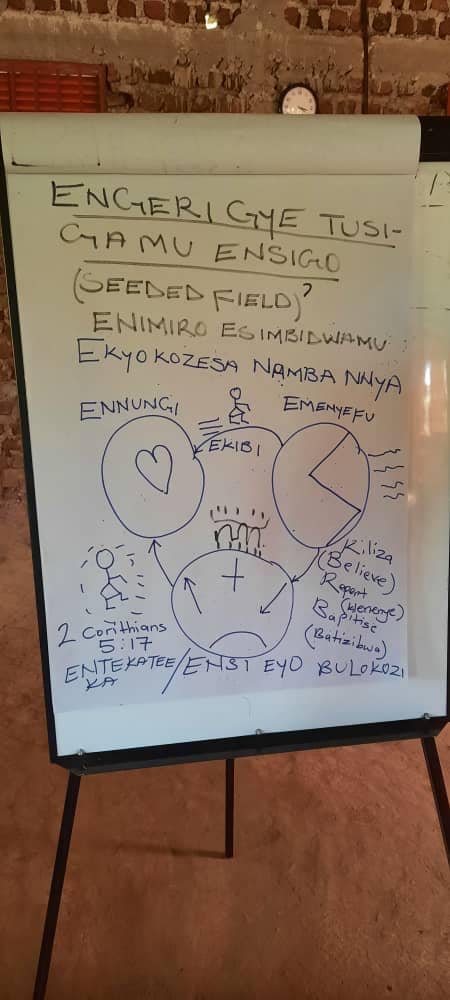 ENGERI GYE TUSI-
GAMU ENSIGO
(SEEDED FIELD)?
ENIMIRO ESIMBIDWAMU
EKYOKOZESA NAMBA NNYA
ENNUNGI
EMENYEFU
EKIBI
Kiliza
(Believe)
Repent
(Wenenye)
Baptise
(Batizibwa)
2 Corithians
5:17
ENTEKATEE
KA
/ENSI EYO BULOKOZI